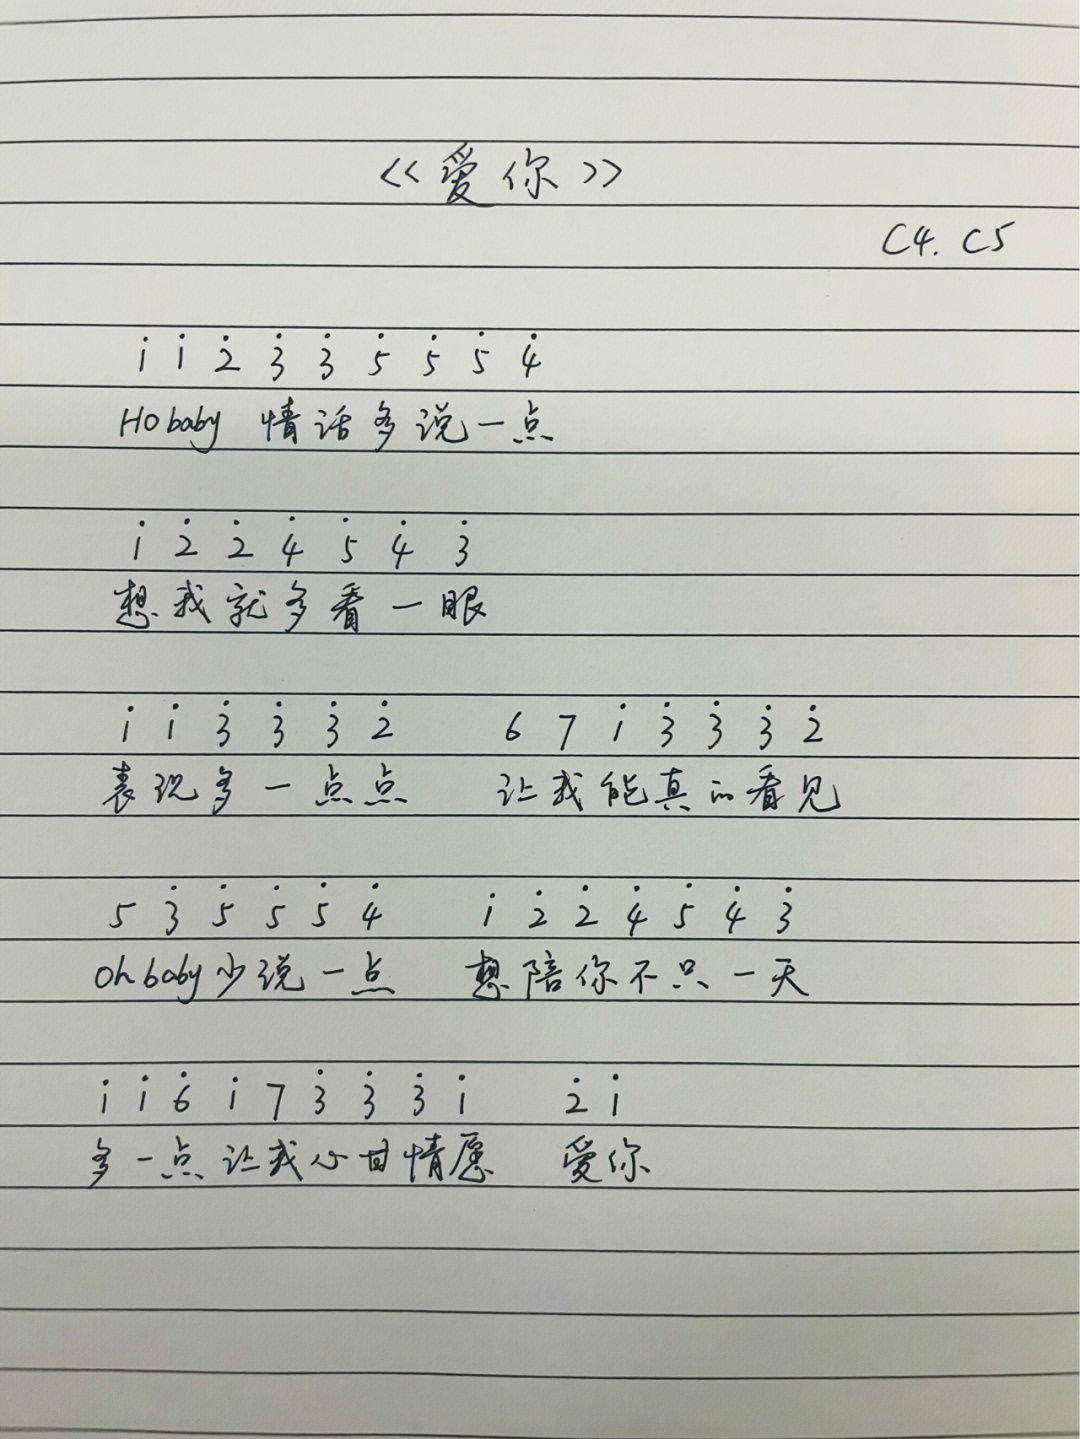 《爱你》
C4. C5
i̇ i̇ 2̇ 3̇ 3̇ 5̇ 5̇ 5̇ 4̇
Ho baby 情话多说一点
i̇ 2̇ 2̇ 4̇ 5̇ 4̇ 3̇
想我就多看一眼
i̇ i̇ 3̇ 3̇ 3̇ 2̇ 6 7 i̇ 3̇ 3̇ 3̇ 2̇
表现多一点点 让我能真的看见
5 3̇ 5̇ 5̇ 5̇ 4̇ i̇ 2̇ 2̇ 4̇ 5̇ 4̇ 3̇
Oh baby少说一点 想陪你不只一天
i̇ i̇ 6̇ i̇ 7 3̇ 3̇ 3̇ i̇ 2̇ i̇
多一点 让我心甘情愿 爱你